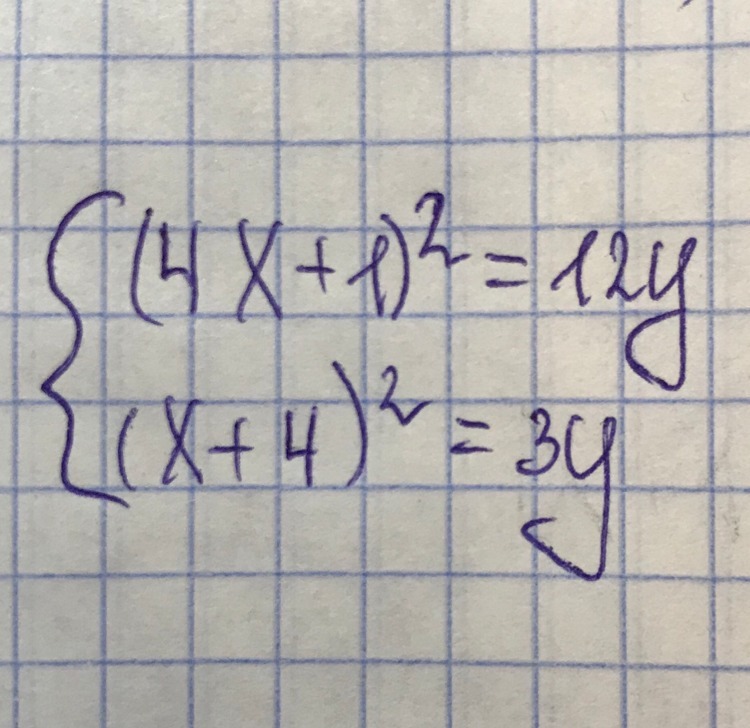 (4x+1)² = 12y
(x+4)² = 3y